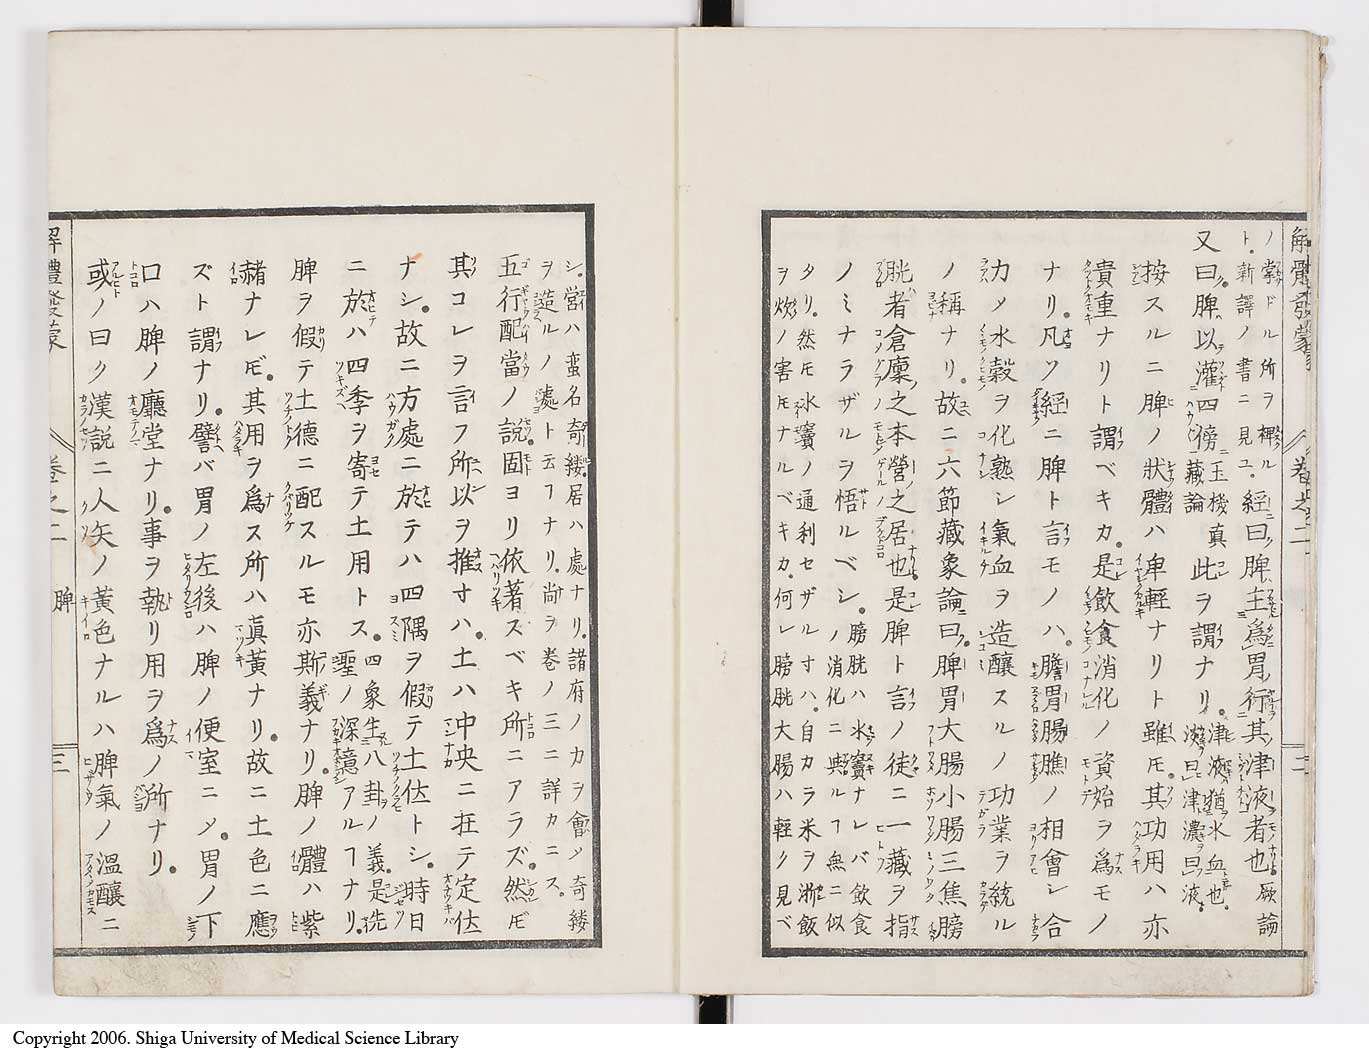 解體發蒙
卷之二
二
ノ掌ドル所ヲ裨スル
ト新譯ノ書ニ見ユ
經曰脾主爲胃行其津液者也
厥論
又曰脾以灌四傍
玉機真
藏論
此ヲ謂ナリ
津液猶水血也
淺曰津濃曰液
按スルニ脾ノ狀體ハ卑輕ナリト雖モ其功用ハ亦
貴重ナリト謂ベキカ是飲食消化ノ資始ヲ爲モノ
ナリ凡ソ經ニ脾ト言モノハ膽胃腸膲ノ相會シ合
カノ水穀ヲ化熟シ氣血ヲ造釀スルノ功業ヲ統ル
ノ稱ナリ故ニ六節藏象論曰脾胃大腸小腸三焦膀
胱者倉廩之本營之居也是脾ト言ノ徒ニ一藏ヲ指
ノミナラザルヲ悟ルベシ
膀胱ハ水竇ナレバ飲食
ノ消化ニ與ルヿ無ニ似
タリ然モ水竇ノ通利セザル寸ハ自カラ米ヲ淅飯
ヲ炊ノ害モナルベキカ何レ膀胱大腸ハ輕ク見ベ
シ當ハ蛮名奇縷居ハ處ナリ諸府ノカヲ會メ奇縷
ヲ造ルノ處ト云フナリ尚ヲ卷ノ三ニ詳カニス
五行配當ノ說固ヨリ依著ズベキ所ニアラズ然モ
其コレヲ言フ所以ヲ推寸ハ土ハ中央ニ在テ定位
ナシ故ニ方處ニ於テハ四隅ヲ假テ土位トシ時日
ニ於ハ四季ヲ寄テ土用トス
四象生八卦ノ義是洗
聖ノ深意アルヿナリ
脾ヲ假テ土德ニ配スルモ亦斯義ナリ脾ノ體ハ紫
赭ナレモ其用ヲ爲ス所ハ真黃ナリ故ニ土色ニ應
ズト謂ナリ譬バ胃ノ左後ハ脾ノ便室ニメ胃ノ下
口ハ脾ノ廳堂ナリ事ヲ執リ用ヲ爲ノ所ナリ
或ノ曰ク漢說ニ人矢ノ黃色ナルハ脾氣ノ溫釀ニ
解體發蒙
卷之二
脾
三
Copyright 2006. Shiga University of Medical Science Library